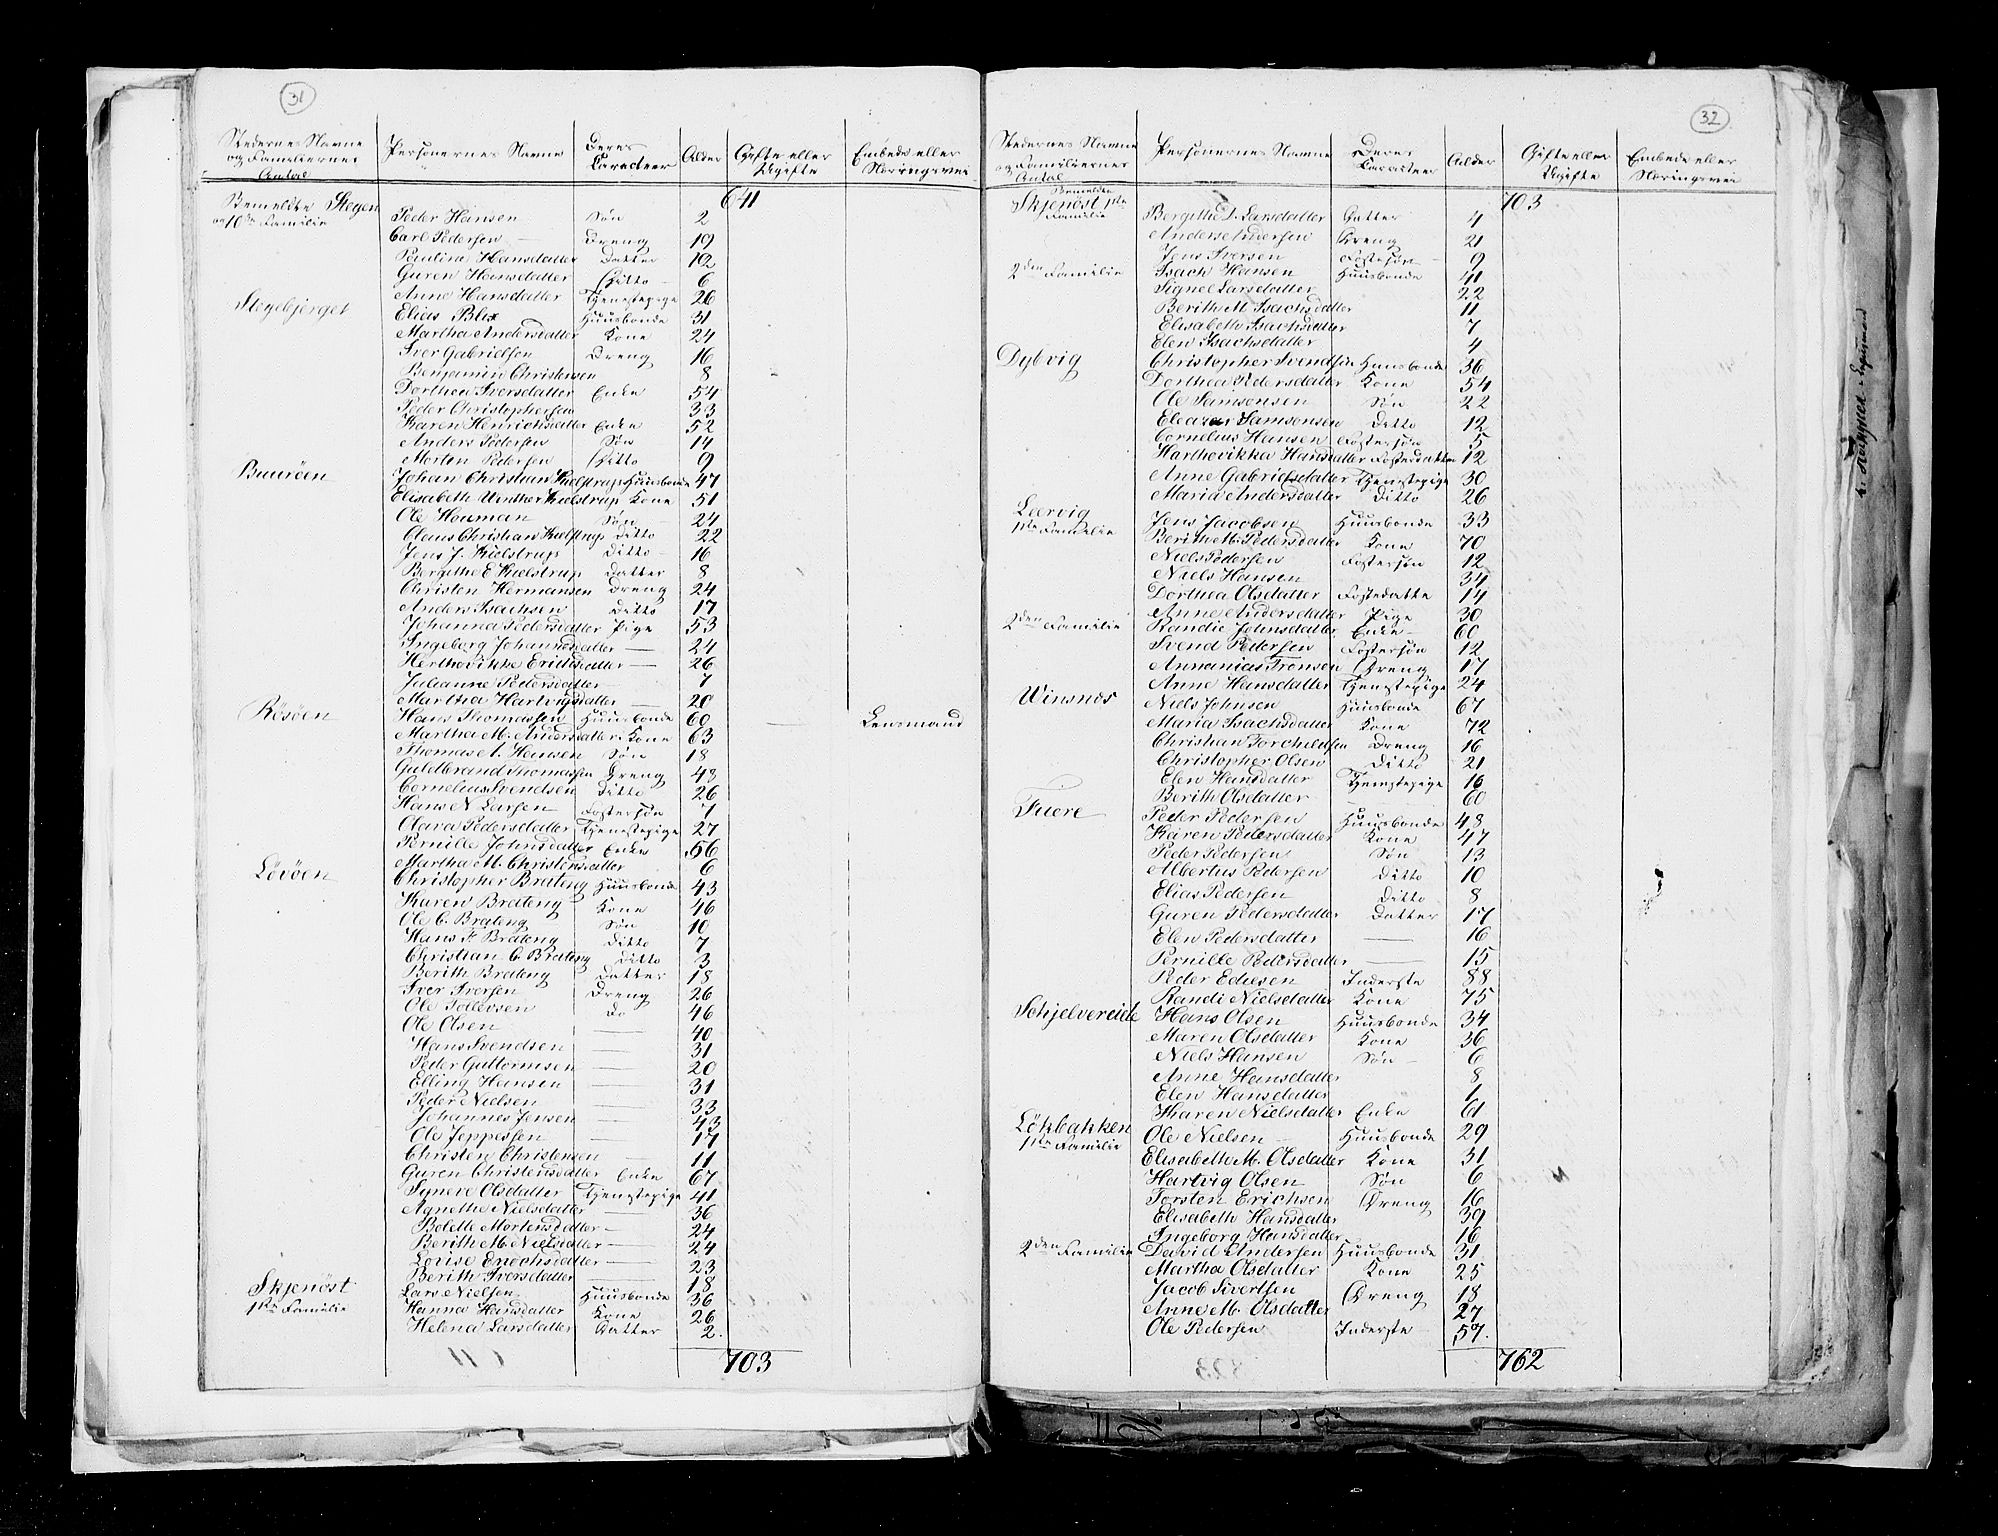 31
Stedernes Navne og Familiernes Antal | Personernes Navne | Deres Caracteer | Alder | Gifte eller Ugifte | Embede eller Næringsvei
Bemeldte Stegen 641
10de Familie Peder Hansen Søn 2
Carl Pedersen Dreng 19
Paulina Hansdatter Datter 12
Guren Hansdatter Ditto 6
Anne Hansdatter Tjenestepige 26
Stegebjerget Elias Blix Huusbonde 31
Martha Andersdatter Kone 24
Iver Gabrielsen Dreng 16
Benjamin Christensen 8
Dorthea Iversdatter Enke 54
Peder Christophersen 33
Karen Henrichsdatter Enke 52
Anders Pedersen Søn 14
Morten Pedersen Ditto 9
Buurøen Johan Christian Kielstrup Huusbonde 47
Elisabeth Winther Kielstrup Kone 51
Ole Houman Søn 24
Claus Christian Kielstrup Ditto 22
Jens J. Kielstrup Ditto 16
Bergithe E Kielstrup Datter 8
Christen Hermansen Dreng 24
Anders Isachsen Ditto 17
Johanna Pedersdatter Pige 53
Ingeborg Johannsdatter — 24
Herthovikke Erichsdatter — 26
Julianne Pedersdatter 7
Martha Hartvigsdatter — 20
Røsøen Hans Thomassen Huusbonde 60 — Lensmand
Martha M. Andersdatter Kone 63
Thomas A. Hansen Søn 18
Guldbrand Thomassen Dreng 43
Cornelius Svendsen Ditto 26
Hans N. Larsen Fostersøn 7
Clara Pedersdatter Tjenestepige 27
Pernille Johnsdatter Enke 56
Martha M. Christensdatter 6
Løvøen Christopher Brateng Huusbonde 43
Karen Brateng Kone 46
Ole C. Brateng Søn 10
Hans F Brateng Ditto 7
Christian C. Brateng Ditto 3
Berith Brateng Datter 18
Iver Iversen Dreng 26
Ole Tollevsen Do 46
Ole Olsen — 40
Hans Svendsen — 31
Peder Guttormsen — 20
Elling Hansen — 31
Peder Nielsen — 33
Johannes Jensen — 43
Ole Jeppesen — 17
Christen Christensen — 11
Guren Christensdatter Enke 67
Syneve Olsdatter Tjenestepige 41
Agnethe Nielsdatter — 36
Bolette Mortensdatter — 24
Berith M. Nielsdatter — 24
Lovise Enochsdatter — 23
Berith Iversdatter — 18
Skjenøst Lars Nielsen Huusbonde 36
1ste Familie Hanna Hansdatter Kone 26
Helena Larsdatter Datter 2.
703
32
Stedernes Navne og Familiernes Antal | Personernes Navne | Deres Caracteer | Alder | Gifte eller Ugifte | Embede eller Næringsvei
Bemeldte Skjenøst 1ste Familie 703
Bergithe L. Larsdatter Datter 4
Anders Andersen Dreng 21
Jens Iversen Fostersøn 9
2den Familie Isach Hansen Huusbonde 41
Signel Larsdatter 22
Berith M. Isachsdatter 11
Elisabeth Isachsdatter 7
Elen Isachsdatter 4
Dybvig Christopher Svendsen Huusbonde 36
Dorthea Pedersdatter Kone 54
Ole Samsonsen Søn 22
Eleazar Samsonsen Ditto 12
Cornelius Hansen Fostersøn 5
Harthovikka Hansdatter Fosterdatter 12
Anne Gabrielsdatter Tjenestepige 30
Maria Andersdatter Ditto 26
Leervig 1ste Familie Jens Jacobsen Huusbonde 33
Berith M. Pedersdatter Kone 70
Niels Pedersen Fostersøn 12
Niels Hansen 34
Dorthea Olsdatter Fostedatte 14
Anne Andersdatter Pige 30
2den Familie Randie Johnsdatter Enke 60
Svend Pedersen Fostersøn 12
Annanias Tronsen Dreng 17
Anne Hansdatter Tjenestepige 24
Winsnes Niels Johnsen Huusbonde 67
Maria Isachsdatter Kone 72
Christian Torchildsen Dreng 16
Christopher Olsen Ditto 21
Elen Hansdatter Tjenestepige 16
Berith Olsdatter 60
Fiere Peder Pedersen Huusbonde 48
Karen Pedersdatter Kone 47
Peder Pedersen Søn 13
Albertus Pedersen Ditto 10
Elias Pedersen Ditto 8
Guren Pedersdatter Datter 17
Elen Pedersdatter — 16
Pernille Pedersdatter — 15
Peder Ediesen Inderste 88
Randi Nielsdatter Kone 75
Schjelvereide Hans Olsen Huusbonde 34
Maren Olsdatter Kone 36
Niels Hansen Søn 6
Anne Hansdatter 8
Elen Hansdatter 1
Karen Nielsdatter Enke 61
Løkbakken Ole Nielsen Huusbonde 29
1ste Familie Elisabeth M. Olsdatter Kone 31
Hartvig Olsen Søn 6
Torsten Erichsen Dreng 16
Elisabeth Hansdatter 39
Ingeborg Hansdatter 16
2den Familie David Andersen Huusbonde 31
Martha Olsdatter Kone 25
Jacob Sivertsen Dreng 18
Anne M. Olsdatter 27
Ole Pedersen Inderste 57.
762